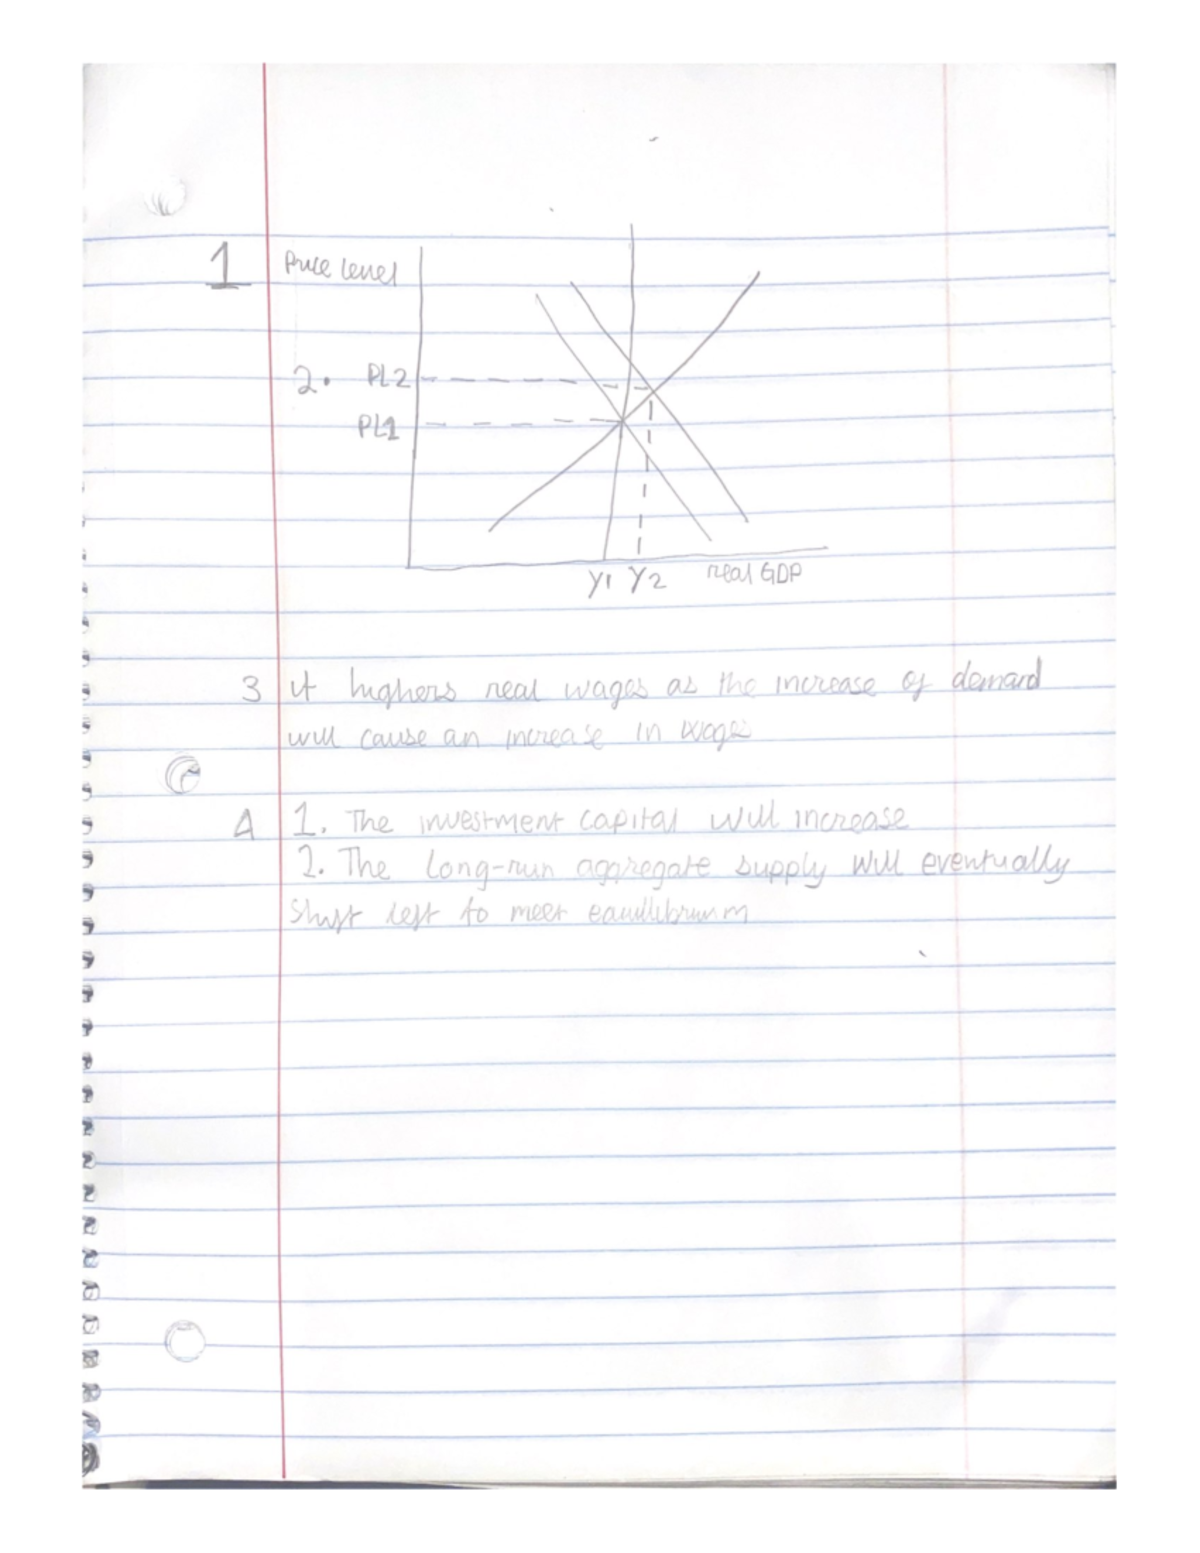 1
Price level
2. PL2
PL1
Y1 Y2 real GDP
3 it highers real wages as the increase of demand
will cause an increase in wages
4 1. The investment capital will increase
2. The long-run aggregate supply will eventually
shift left to meet equilibrium